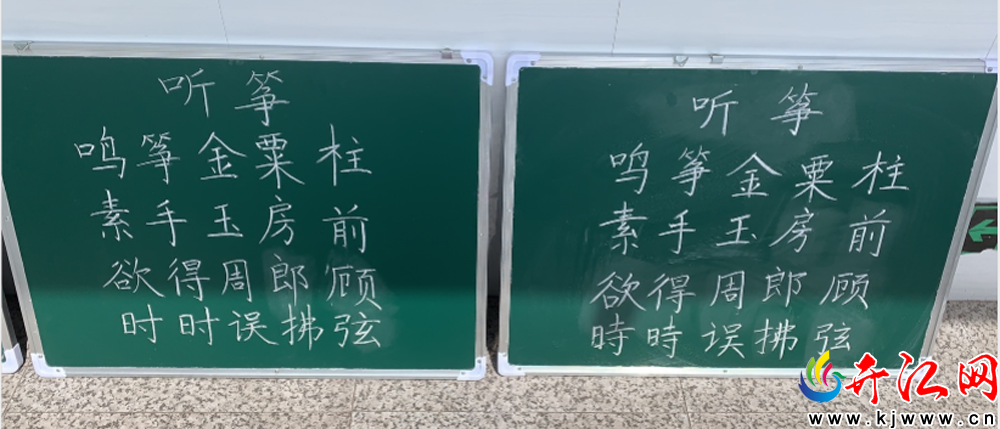 听筝
鸣筝金粟柱
素手玉房前
欲得周郎顾
时时误拂弦
听筝
鸣筝金粟柱
素手玉房前
欲得周郎顾
時時误拂弦
开江网
www.kjwww.cn